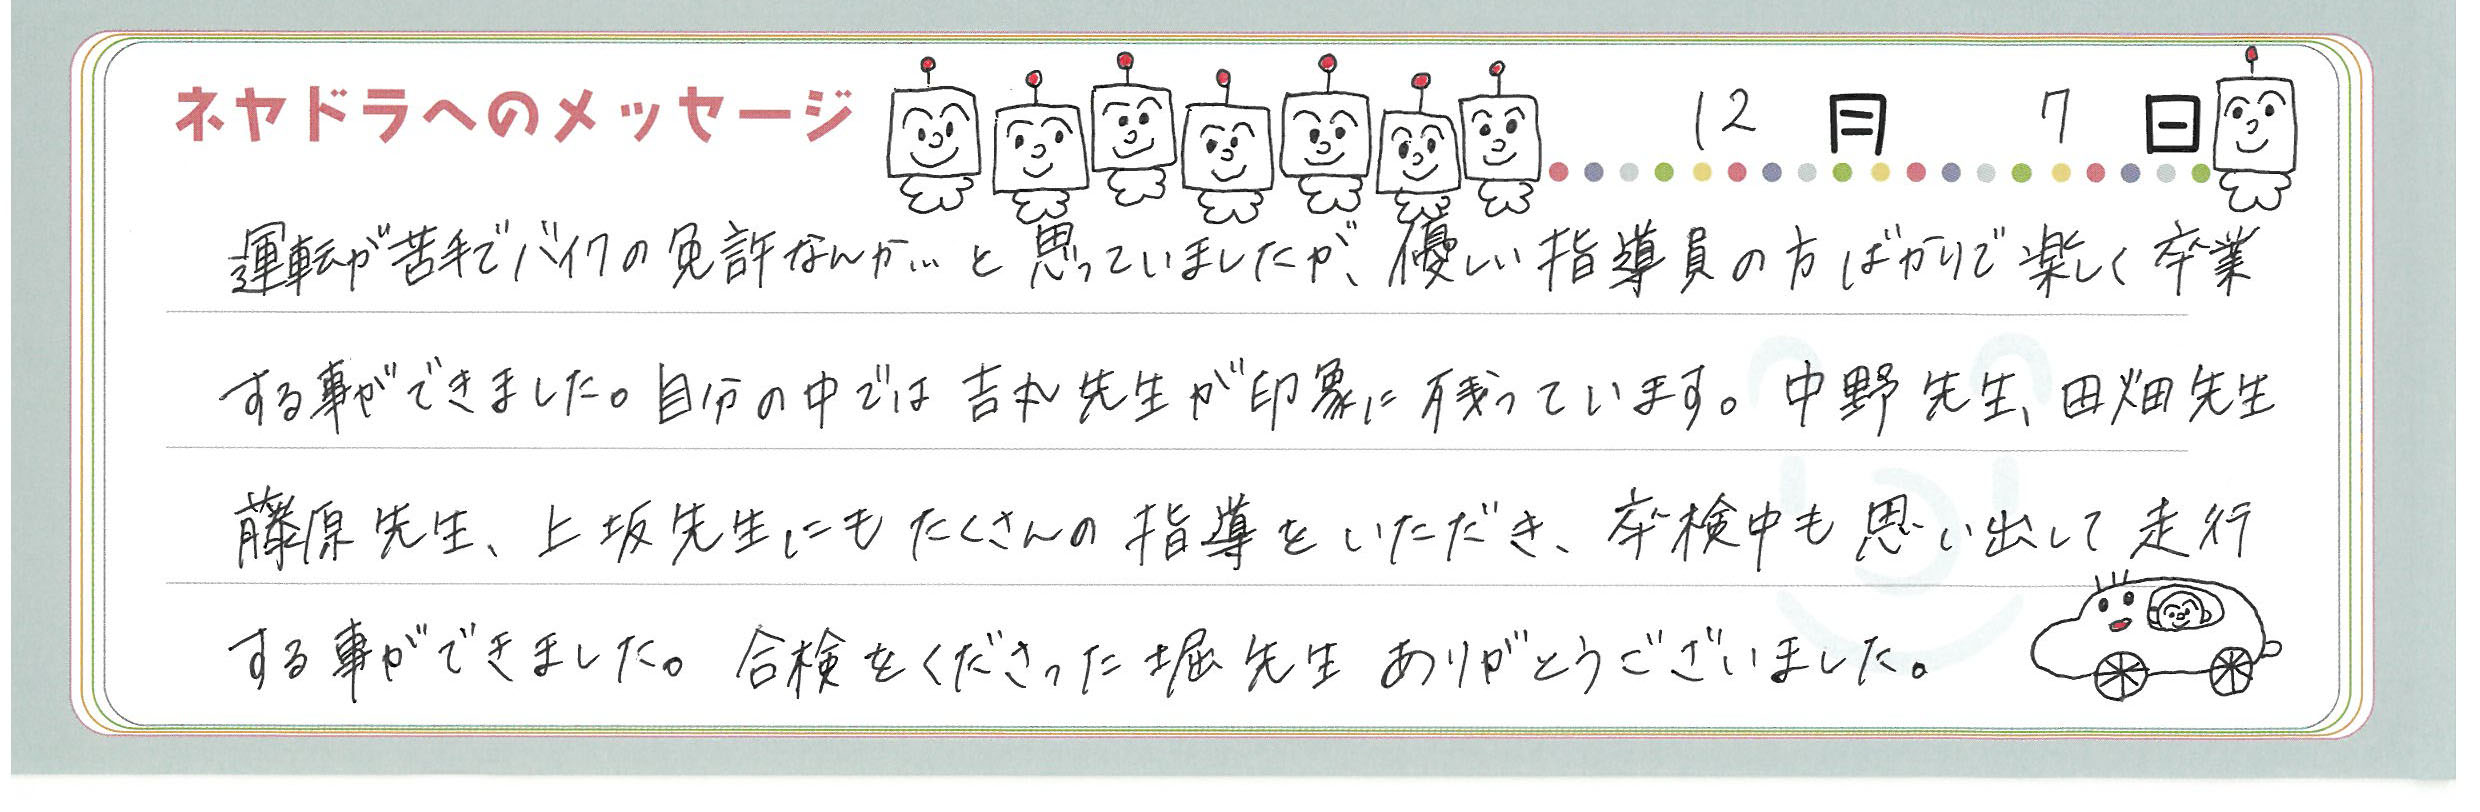 ネヤドラへのメッセージ 12月 7日
運転が苦手でバイクの免許なんか… と思っていましたが、優しい指導員の方ばかりで楽しく卒業
する事ができました。自分の中では吉丸先生が印象に残っています。中野先生、田畑先生
藤原先生、上坂先生にもたくさんの指導をいただき、卒検中も思い出して走行
する事ができました。合検をくださった堀先生ありがとうございました。